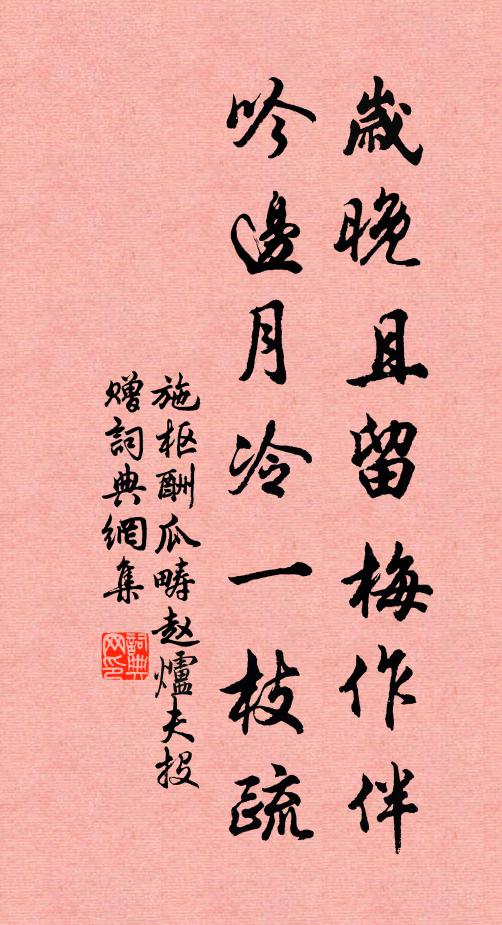 歲晚且留梅作伴
吟邊月冷一枝疏
施枢酬瓜畴赵爐夫投
贈詞典網集
詞典網印